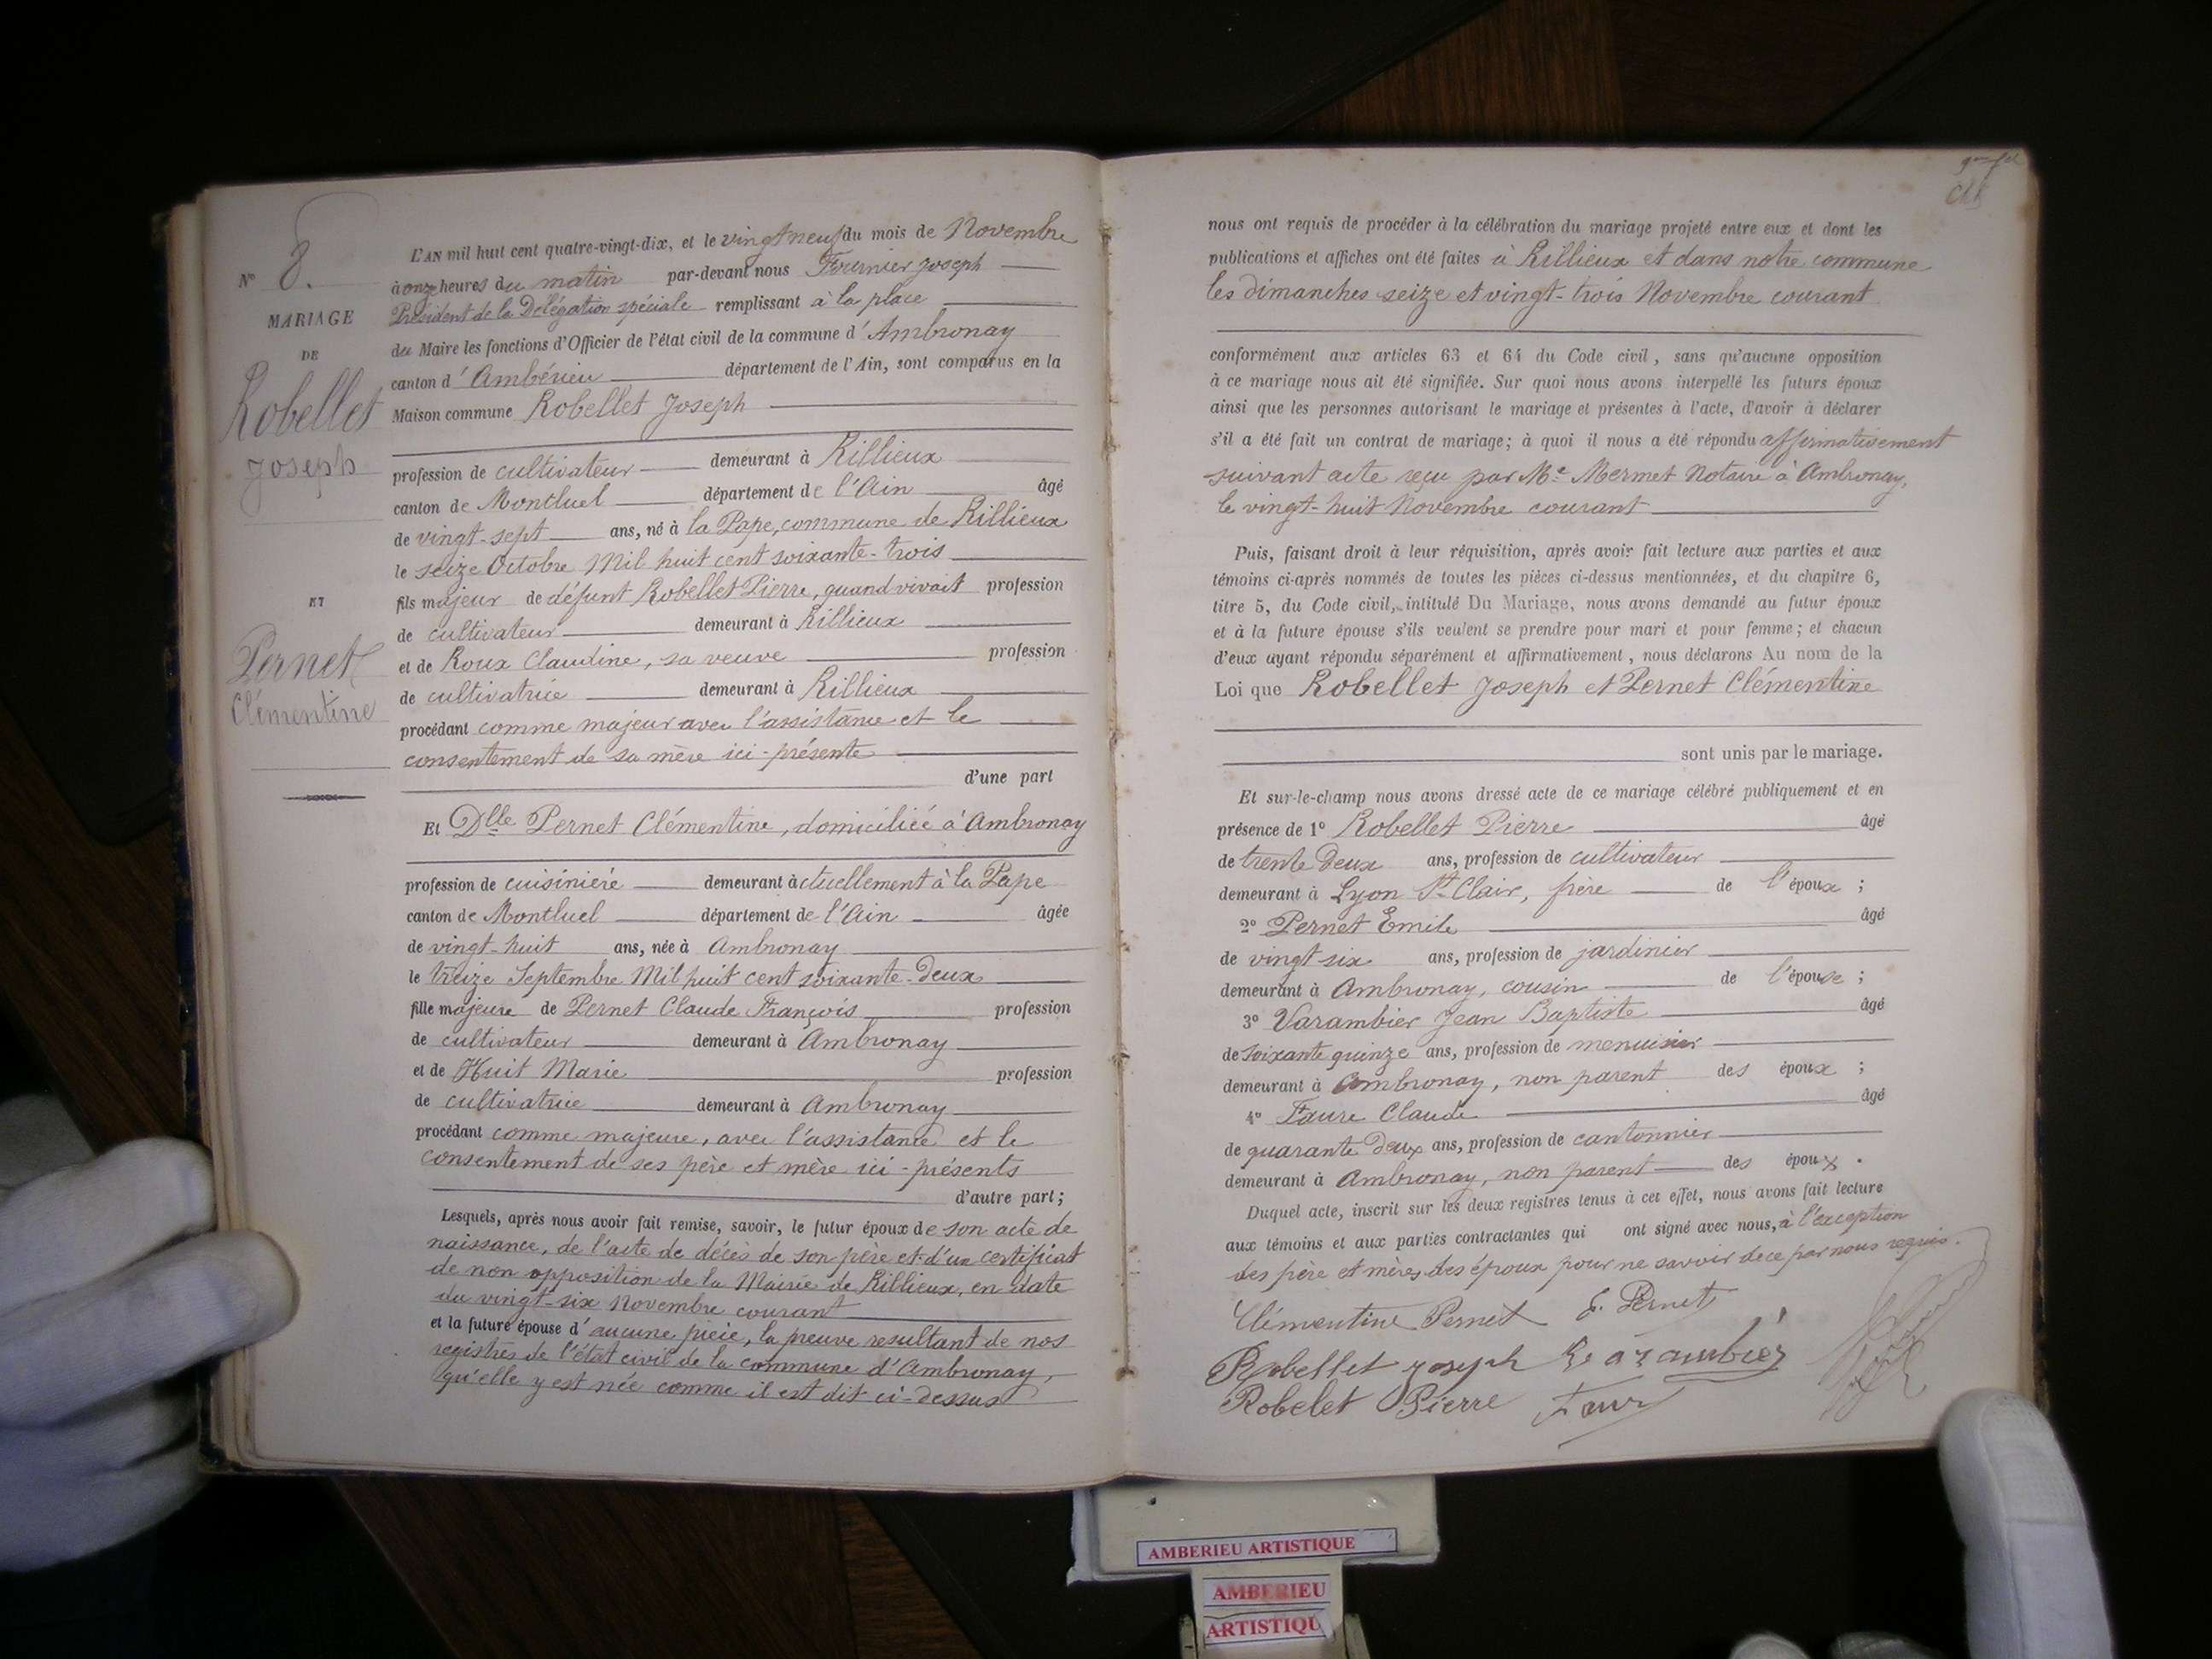 N° 8.
MARIAGE
DE
Robellet
Joseph
ET
Pernet
Clémentine
L'AN mil huit cent quatre-vingt-dix, et le vingt neuf du mois de Novembre
à onze heures du matin par-devant nous Fournier Joseph
Président de la Délégation spéciale remplissant à la place
du Maire les fonctions d'Officier de l'état civil de la commune d'Ambronay
canton d'Ambérieu département de l'Ain, sont comparus en la
Maison commune Robellet Joseph
profession de cultivateur demeurant à Rillieux
canton de Montluel département de l'Ain âgé
de vingt-sept ans, né à la Pape, commune de Rillieux
le seize Octobre Mil huit cent soixante-trois
fils majeur de défunt Robellet Pierre, quand vivait profession
de cultivateur demeurant à Rillieux
et de Roux Claudine, sa veuve profession
de cultivatrice demeurant à Rillieux
procédant comme majeur avec l'assistance et le
consentement de sa mère ici-présente
d'une part
Et Dlle Pernet Clémentine, domiciliée à Ambronay
profession de cuisinière demeurant actuellement à la Pape
canton de Montluel département de l'Ain âgée
de vingt-huit ans, née à Ambronay
le treize Septembre Mil huit cent soixante-deux
fille majeure de Pernet Claude François profession
de cultivateur demeurant à Ambronay
et de Huit Marie profession
de cultivatrice demeurant à Ambronay
procédant comme majeure, avec l'assistance et le
consentement de ses père et mère ici-présents
d'autre part;
Lesquels, après nous avoir fait remise, savoir, le futur époux de son acte de
naissance, de l'acte de décès de son père et d'un certificat
de non opposition de la Mairie de Rillieux, en date
du vingt-six Novembre courant
et la future épouse d'aucune pièce, la preuve resultant de nos
registres de l'état civil de la commune d'Ambronay,
qu'elle y est née comme il est dit ci-dessus
nous ont requis de procéder à la célébration du mariage projeté entre eux et dont les
publications et affiches ont été faites à Rillieux et dans notre commune
les dimanches seize et vingt-trois Novembre courant
conformément aux articles 63 et 64 du Code civil, sans qu'aucune opposition
à ce mariage nous ait été signifiée. Sur quoi nous avons interpellé les futurs époux
ainsi que les personnes autorisant le mariage et présentes à l'acte, d'avoir à déclarer
s'il a été fait un contrat de mariage; à quoi il nous a été répondu affirmativement
suivant acte reçu par Me Mermet Notaire à Ambronay,
le vingt-huit Novembre courant
Puis, faisant droit à leur réquisition, après avoir fait lecture aux parties et aux
témoins ci-après nommés de toutes les pièces ci-dessus mentionnées, et du chapitre 6,
titre 5, du Code civil, intitulé Du Mariage, nous avons demandé au futur époux
et à la future épouse s'ils veulent se prendre pour mari et pour femme; et chacun
d'eux ayant répondu séparément et affirmativement, nous déclarons Au nom de la
Loi que Robellet Joseph et Pernet Clémentine
sont unis par le mariage.
Et sur-le-champ nous avons dressé acte de ce mariage célébré publiquement et en
présence de 1° Robellet Pierre âgé
de trente deux ans, profession de cultivateur
demeurant à Lyon St Clair, frère de l'époux;
2° Pernet Emile âgé
de vingt six ans, profession de jardinier
demeurant à Ambronay, cousin de l'épouse;
3° Varambier Jean Baptiste âgé
de soixante quinze ans, profession de menuisier
demeurant à Ambronay, non parent des époux;
4° Faure Claude âgé
de quarante deux ans, profession de cantonnier
demeurant à Ambronay, non parent des époux.
Duquel acte, inscrit sur les deux registres tenus à cet effet, nous avons fait lecture
aux témoins et aux parties contractantes qui ont signé avec nous, à l'exception
des père et mères des époux pour ne savoir de ce par nous requis.
Clémentine Pernet E. Pernet
Robellet joseph Varambier
Robelet Pierre Faure
AMBERIEU ARTISTIQUE
AMBERIEU
ARTISTIQU